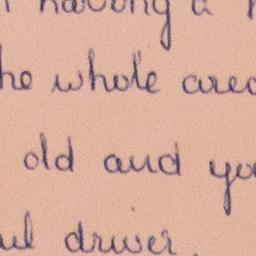 having a
he whole area
old and yo
ul driver.